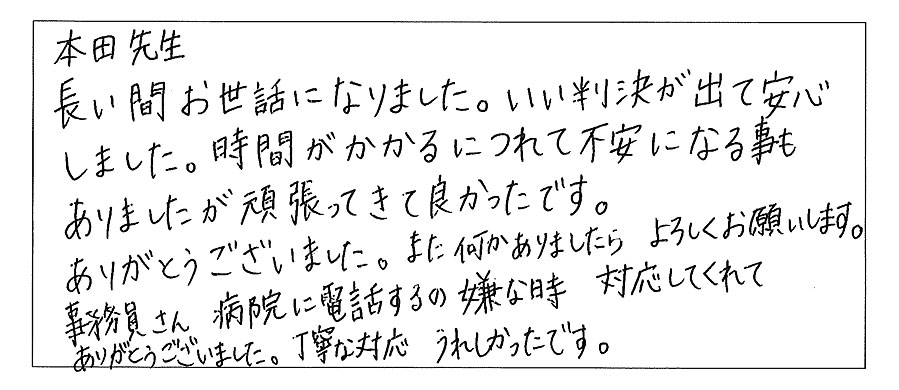 本田先生
長い間お世話になりました。いい判決が出て安心
しました。時間がかかるにつれて不安になる事も
ありましたが頑張ってきて良かったです。
ありがとうございました。また何かありましたら よろしくお願いします。
事務員さん 病院に電話するの嫌な時 対応してくれて
ありがとうございました。丁寧な対応 うれしかったです。